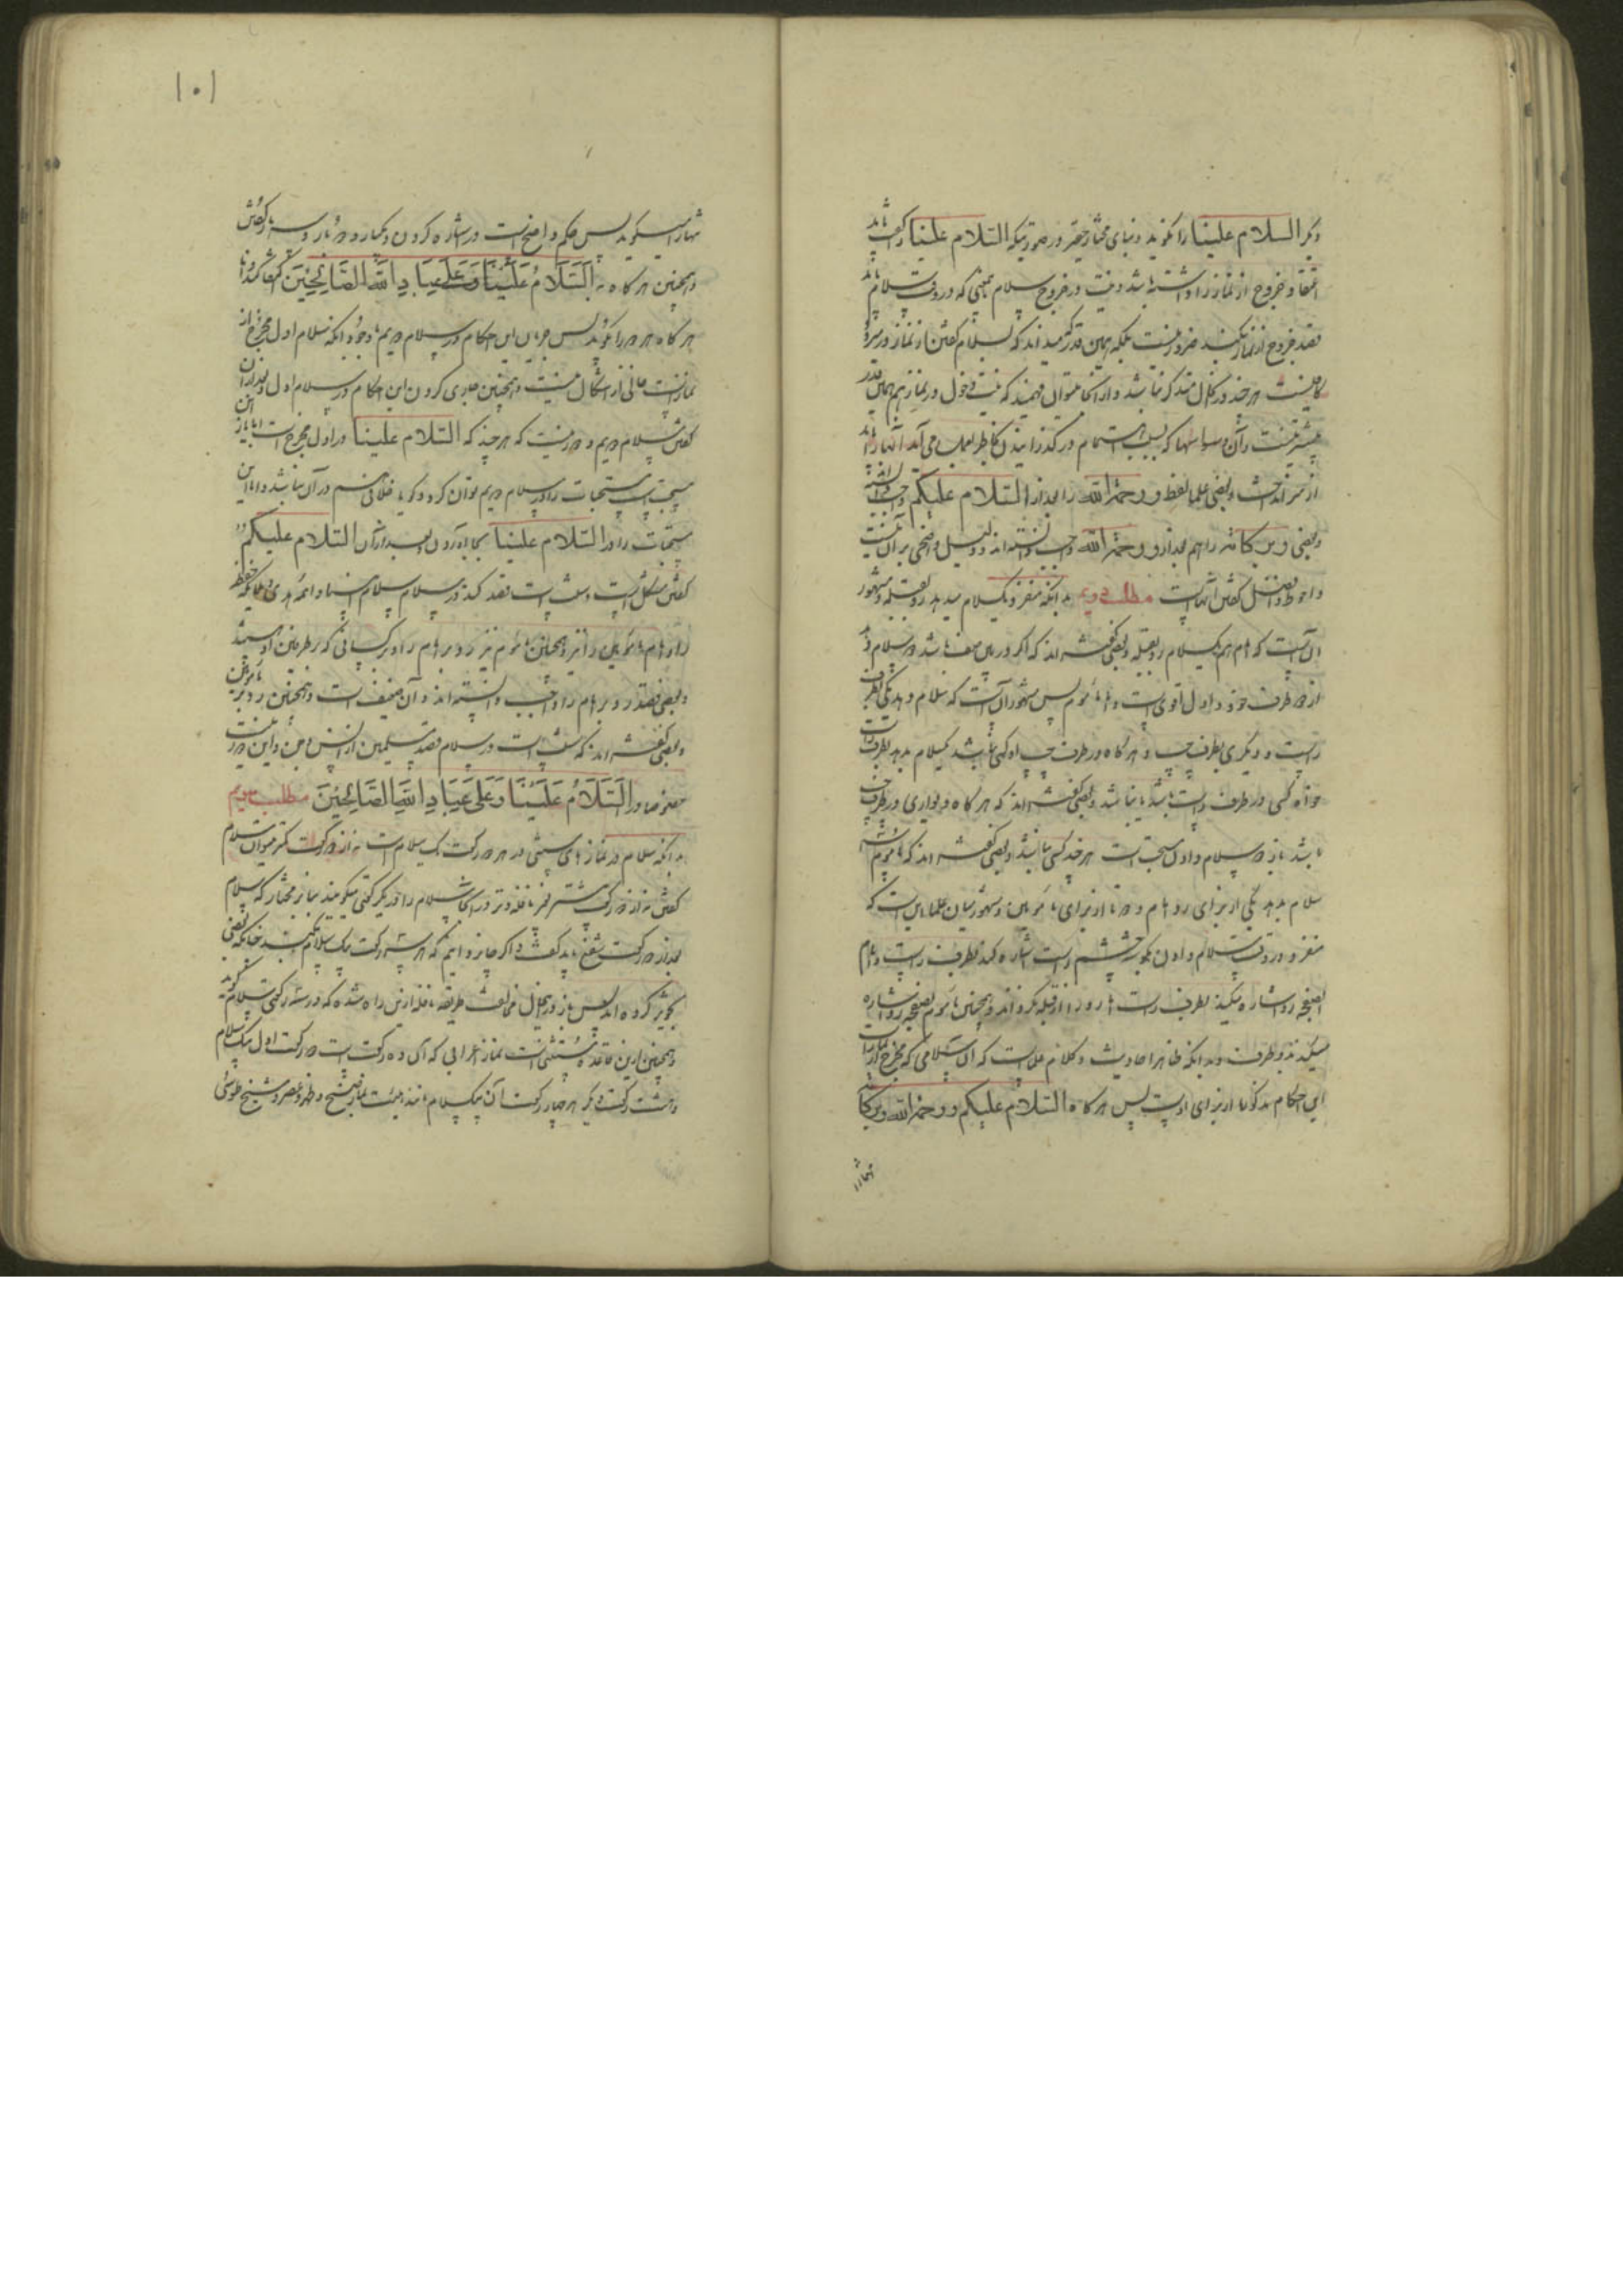 دیگر السلام علینا را نگوید و بنای مختار حقیر در صورتیکه السلام علینا را گفته باشد
اعتقاد خروج از نماز را داشته باشد و نیت در خروج سلام بمعنی که در وقت سلام باید
قصد خروج از نماز بکند ضرور نیست بلکه همین قدر که میداند که بسلام گفتن از نماز در میرود
کافیست هر چند در کمال متذکر نباشد و از آنجا میتوان فهمید که نیت دخول در نماز هم همان قدر
بیشتر نیست و آن وسواسها که بسبب اهتمام در گذرانیدن بخاطر بعمل می آید آنها را باید
از سر انداخت و بعضی علما لفظ و رحمة الله را بعد از السلام علیکم واجب دانسته
و بعضی و برکاته را هم بعد از و رحمة الله واجب دانسته اند و دلیل واضحی بر آن نیست
و احوط و افضل گفتن آنهاست مطلب دویم بدانکه منفرد یکسلام میدهد رو بقبله و مشهور
آن است که امام هم یکسلام رو بقبله و بعضی گفته اند که اگر در میان صف باشد دو سلام دهد
از دو طرف خود و اول اقوی است و اما مأموم پس مشهور آن است که سلام دهد یکی بطرف
راست و دیگری بطرف چپ و هر گاه در طرف چپ او کسی نباشد یکسلام بدهد بطرف راست
خواه کسی در طرف راست باشد یا نباشد و بعضی گفته اند که هر گاه دیواری در طرف چپ
باشد باز دو سلام دادن مستحب است هر چند کسی نباشد و بعضی گفته اند که مأموم سه
سلام بدهد یکی از برای رد امام و دو تا از برای مأمومین و مشهور میان علما این است که
منفرد در وقت سلام دادن بگوشه چشم راست اشاره کند بطرف راست و امام
بصفحه رو اشاره میکند بطرف راست اما رو را از قبله نگرداند و همچنین مأموم بصفحه رو اشاره
میکند بدو طرف و بدانکه ظاهر احادیث و کلام علما است که آن سلامی که مخرج از نماز است
این احکام مذکوره از برای اوست پس هر گاه السلام علیکم و رحمة الله و برکاته
تنها را
١٠١
تنها را میگوید پس حکم واضح است در اشاره کردن و یکبار و دو بار و سه بار گفتن
و همچنین هر گاه به السلام علینا و علی عباد الله الصالحین اکتفا کند و اما
هر گاه هر دو را بگوید پس جریان این احکام در سلام دویم با وجود آنکه سلام اول مخرج از
نماز است خالی از اشکال نیست و همچنین جاری کردن این احکام در سلام اول و بعد از آن
گفتن سلام دویم و دور نیست که هر چند که السلام علینا در اول مخرج است اما باز این
مستحبات را در سلام دویم توان کرد و گویا خلافی هم در آن نباشد و اما این
مستحبات را در السلام علینا بجا آوردن و بعد از آن السلام علیکم را
گفتن مشکل است و سنت است قصد کند در سلام سلام انبیا و ائمه هدی و ملائکه حفظه
را و امام مأمومین را نیز و همچنین مأموم نیز رد بر امام را و بر کسانی که در طرفین اویند
و بعضی قصد رد بر امام را واجب دانسته اند و آن ضعیف است و همچنین رد بر مأمومین
و بعضی گفته اند که سنت است در سلام قصد مسلمین از انس و جن و این دور نیست
خصوصا در السلام علینا و علی عباد الله الصالحین مطلب سویم
بدانکه سلام در نماز های سنتی در هر دو رکعت یک سلام است نه از دو رکعت کمتر میتوان سلام
گفتن نه از دو رکعت بیشتر غیر نافله وتر در آنجا سلام را در یک رکعتی میگویند بنابر مختار که سلام
بعد از دو رکعت شفع باید گفت و اگر جایز دانیم که هر سه رکعت بیک سلام بکنند چنانکه بعضی
تجویز کرده اند پس باز در اینحال مخالف طریقه نافله از این راه شده که در سه رکعتی سلام گوید
و همچنین از این قاعده مستثنی است نماز اعرابی که آن ده رکعت است دو رکعت اول بیک سلام
و هشت رکعت دیگر هر چهار رکعت آن بیک سلام مانند هیئت نماز صبح و ظهر و عصر و شیخ طوسی